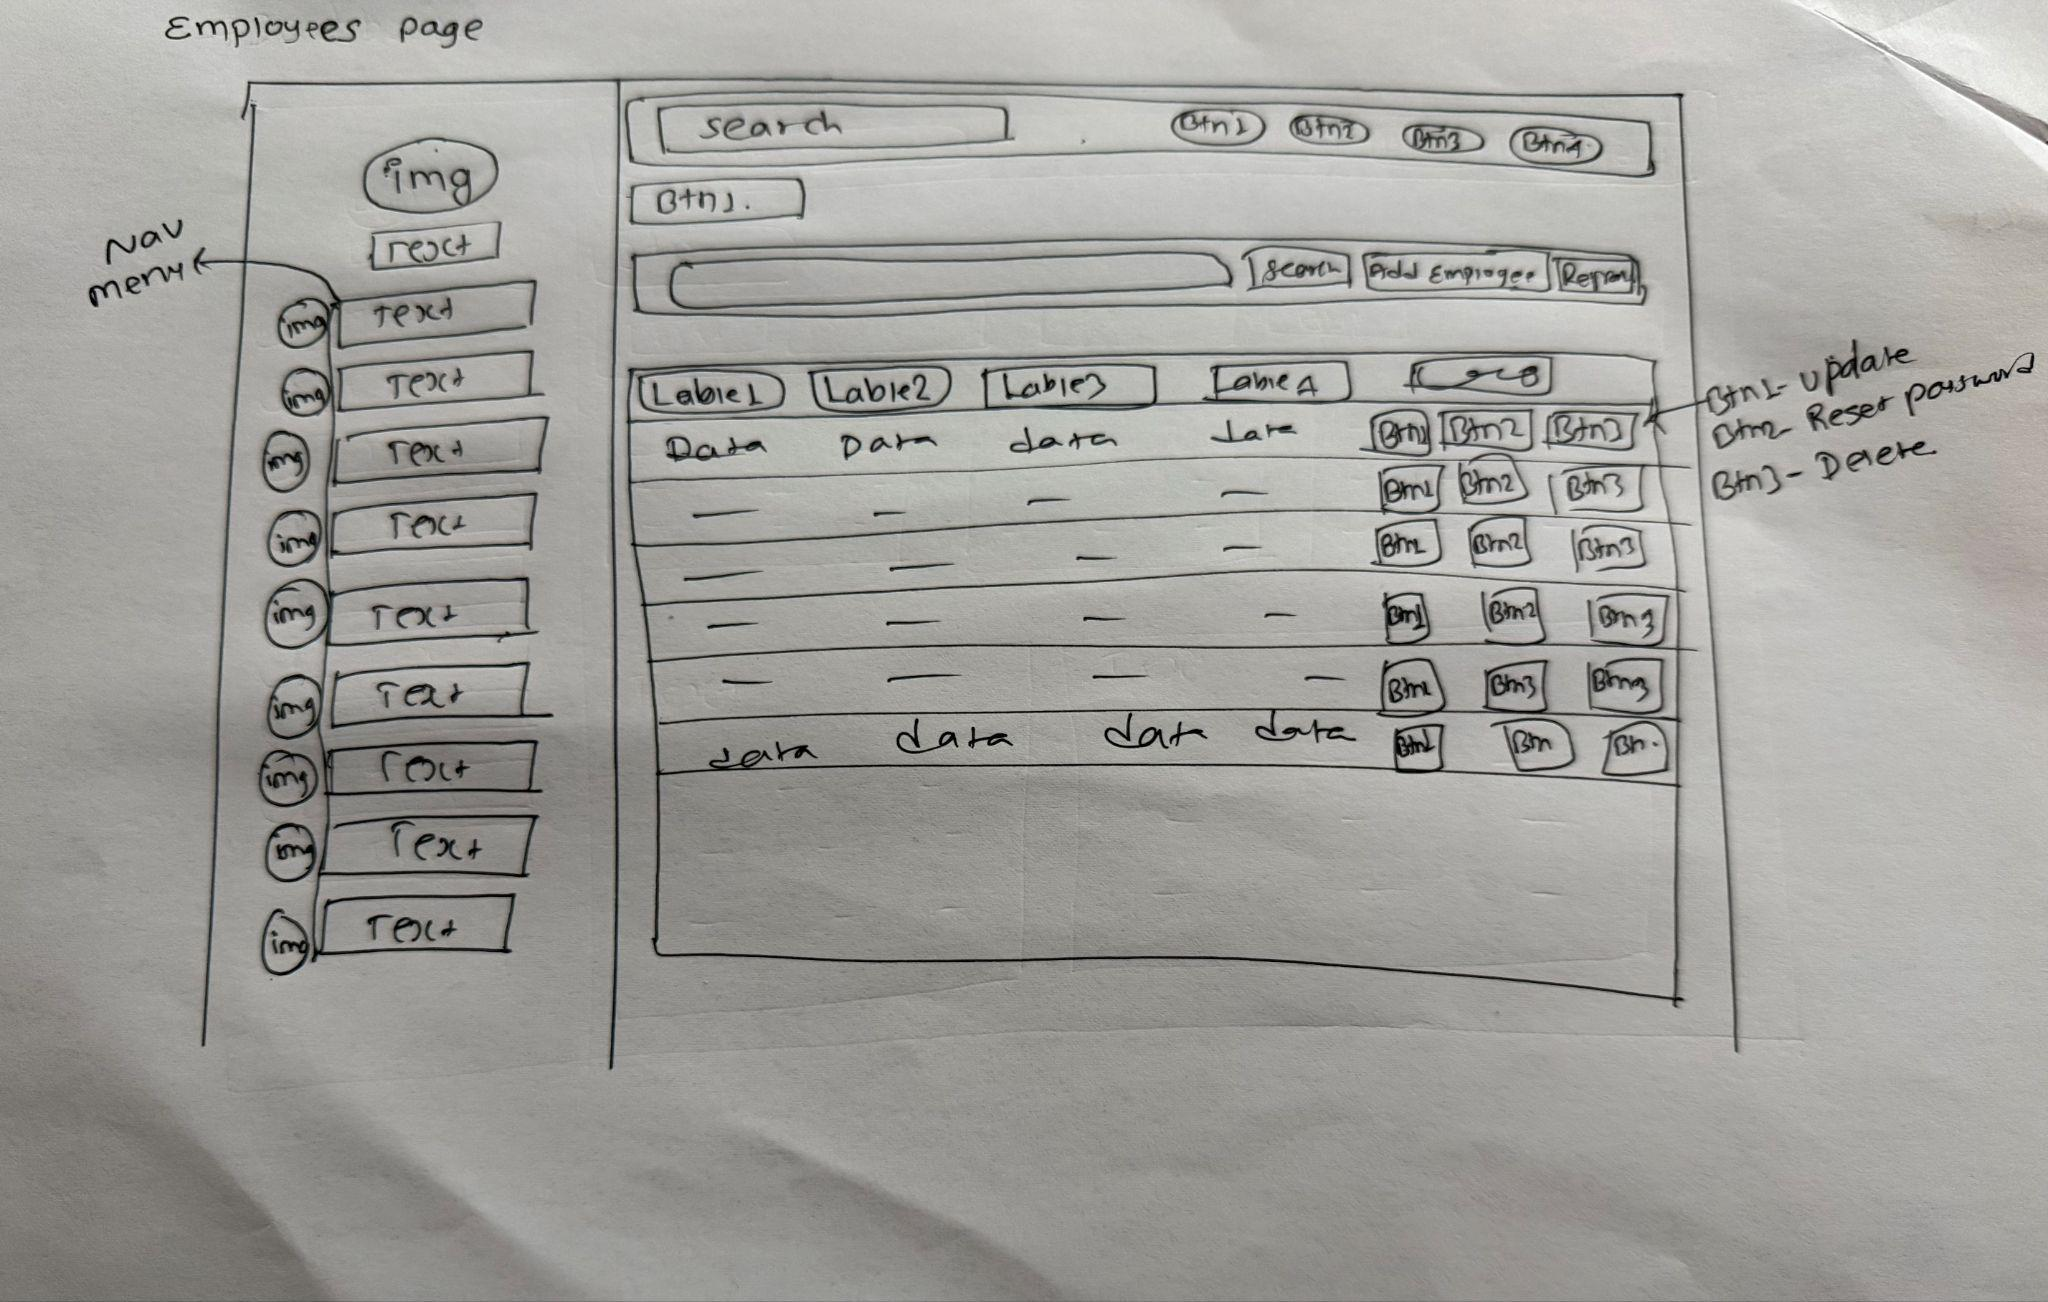 Employees page
img
Text
Nav
menu
img Text
img Text
img Text
img Text
img Text
img Text
img Text
img Text
img Text
search Btn1 Btn2 Btn3 Btn4
Btn1.
search Add Employee
Lable1 Lable2 Lable3 Lable4
Data Data data data Btn1 Btn2 Btn3
Btn1 Btn2 Btn3
Btn1 Btn2 Btn3
Btn1 Btn2 Btn3
Btn1 Btn3 Btn3
data data data data Btn1 Btn Btn.
Btn1- update
Btn2- Reset password
Btn3- Delete